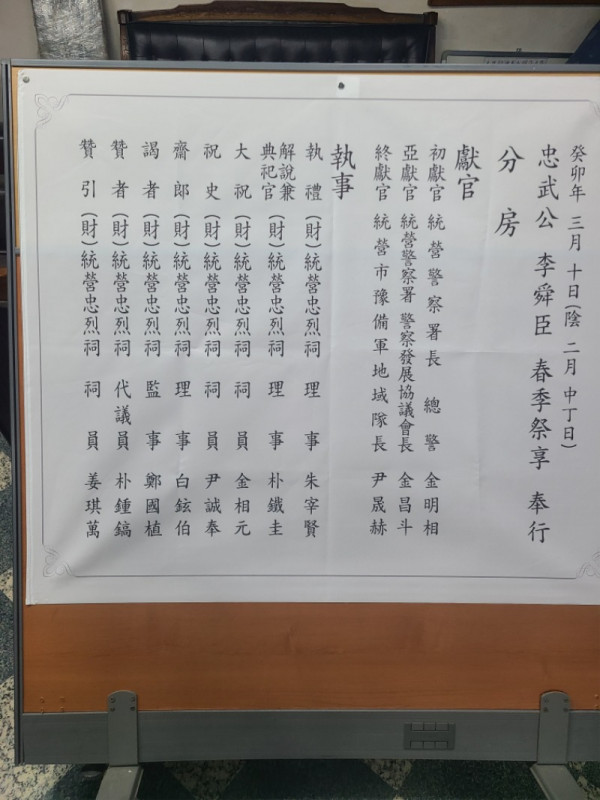 癸卯年 三月 十日(陰 二月 中丁日)
忠武公 李舜臣 春季祭享 奉行
分房
獻官
初獻官 統營警察署長 總警 金明相
亞獻官 統營警察署 警察發展協議會長 金昌斗
終獻官 統營市豫備軍地域隊長 尹晟赫
執事
執禮 (財)統營忠烈祠 理事 朱宰賢
解說兼典祀官 (財)統營忠烈祠 理事 朴鐵圭
大祝 (財)統營忠烈祠 祠員 金相元
祝史 (財)統營忠烈祠 祠員 尹誠奉
齋郞 (財)統營忠烈祠 理事 白鉉伯
謁者 (財)統營忠烈祠 監事 鄭國植
贊者 (財)統營忠烈祠 代議員 朴鍾鎬
贊引 (財)統營忠烈祠 祠員 姜琪萬